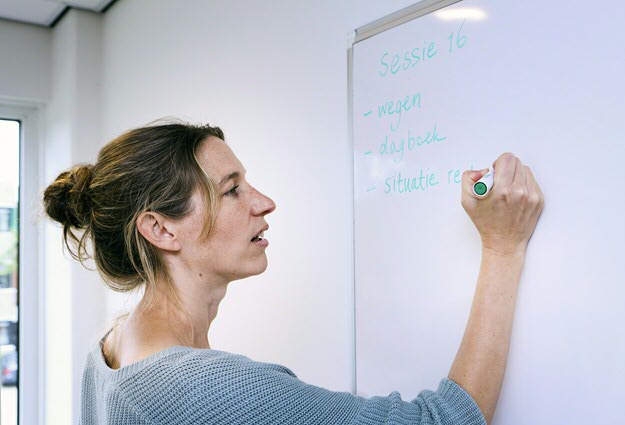 Sessie 16
- wegen
- dagboek
- situatie